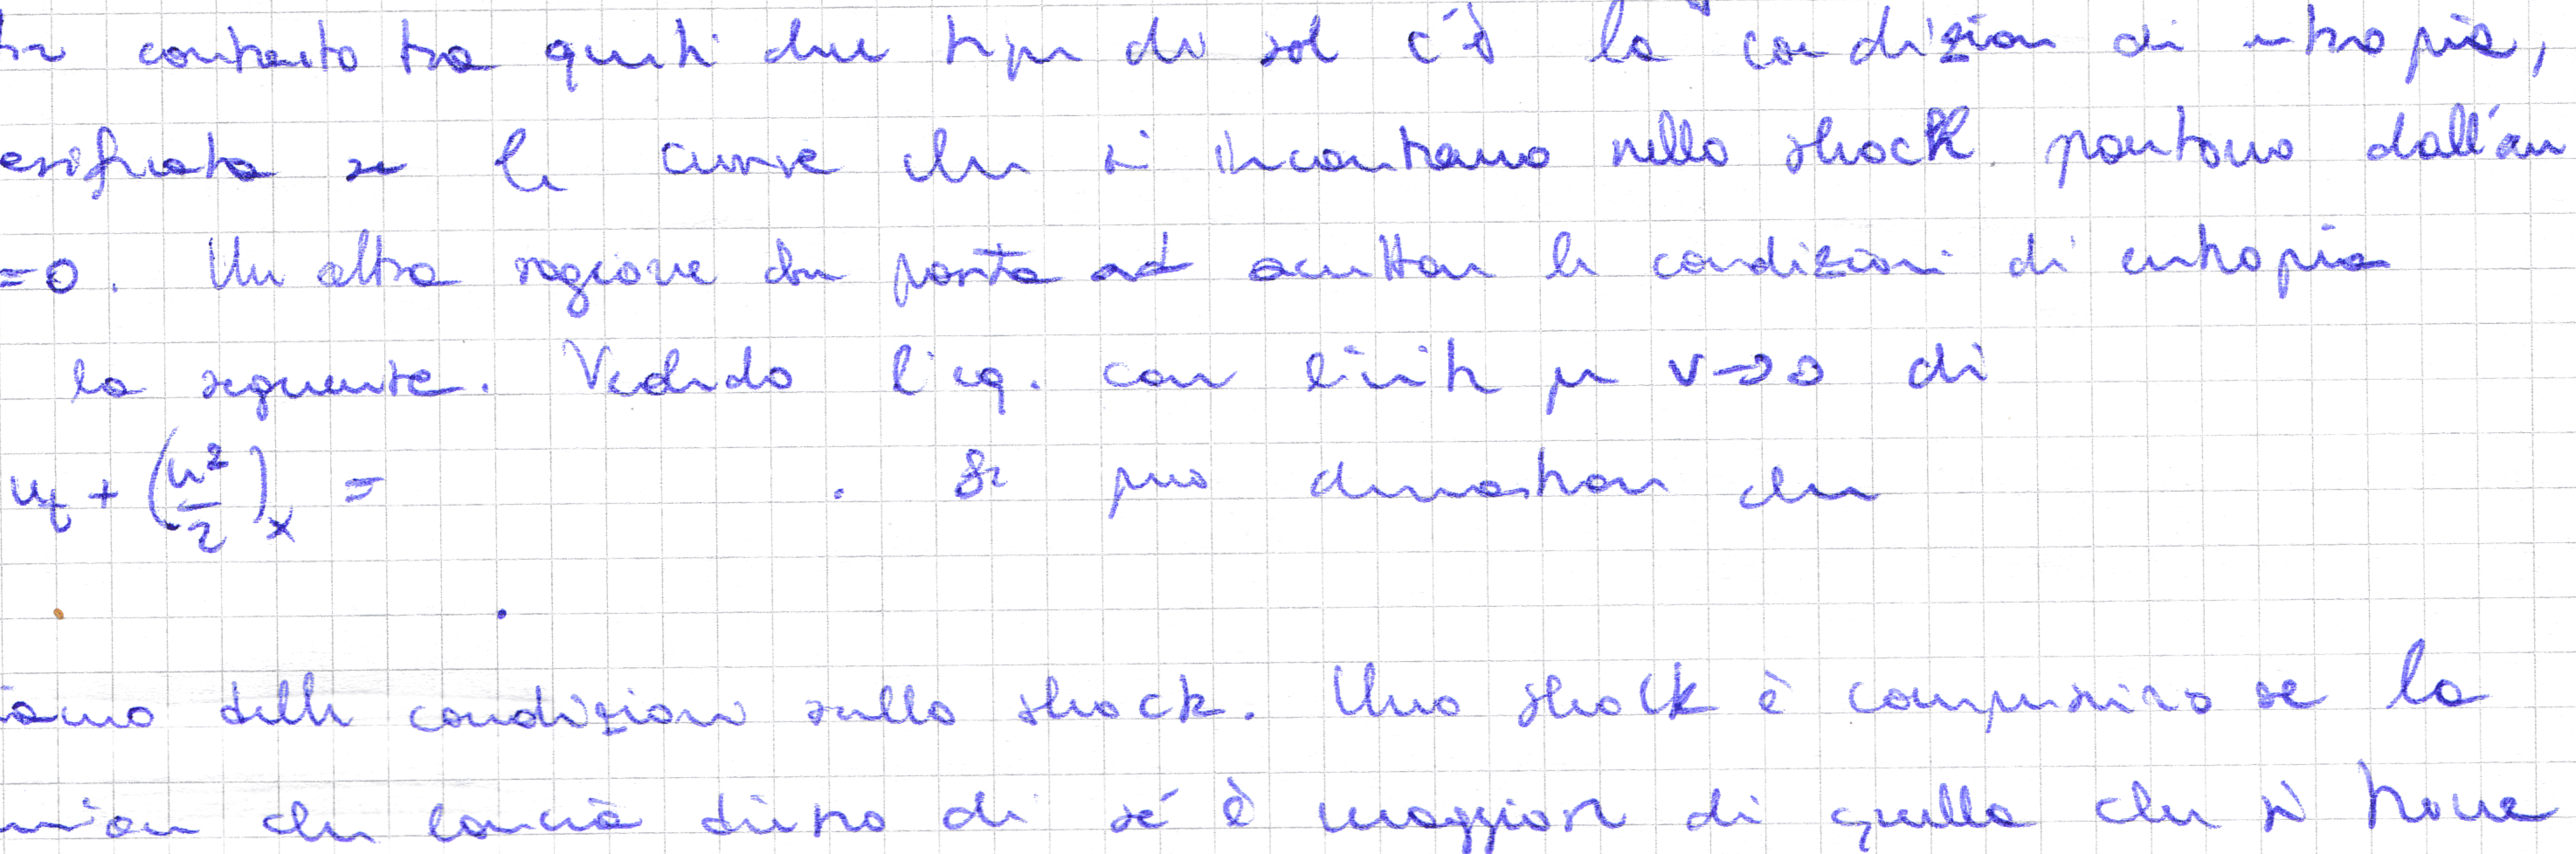 contrasto tra questi due tipi di sol c'è la condizione di entropia,
se le curve che si incontrano nello shock partono dall'an
=0. Un altra ragione che porta ad accettare le condizioni di entropia
la seguente. Vedendo l'eq. con limite per ν→0 di
u_t + (u²/2)_x = . Si può dimostrare che
iamo delle condizioni sullo shock. Uno shock è compressivo se la
che lascia dietro di sé è maggiore di quella che si trova